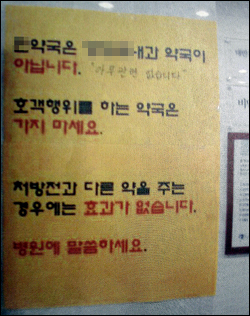 약국은 내과 약국이
아닙니다. "아무관련 없습니다"
호객행위를 하는 약국은
가지 마세요.
처방전과 다른 약을 주는
경우에는 효과가 없습니다.
병원에 말씀하세요.